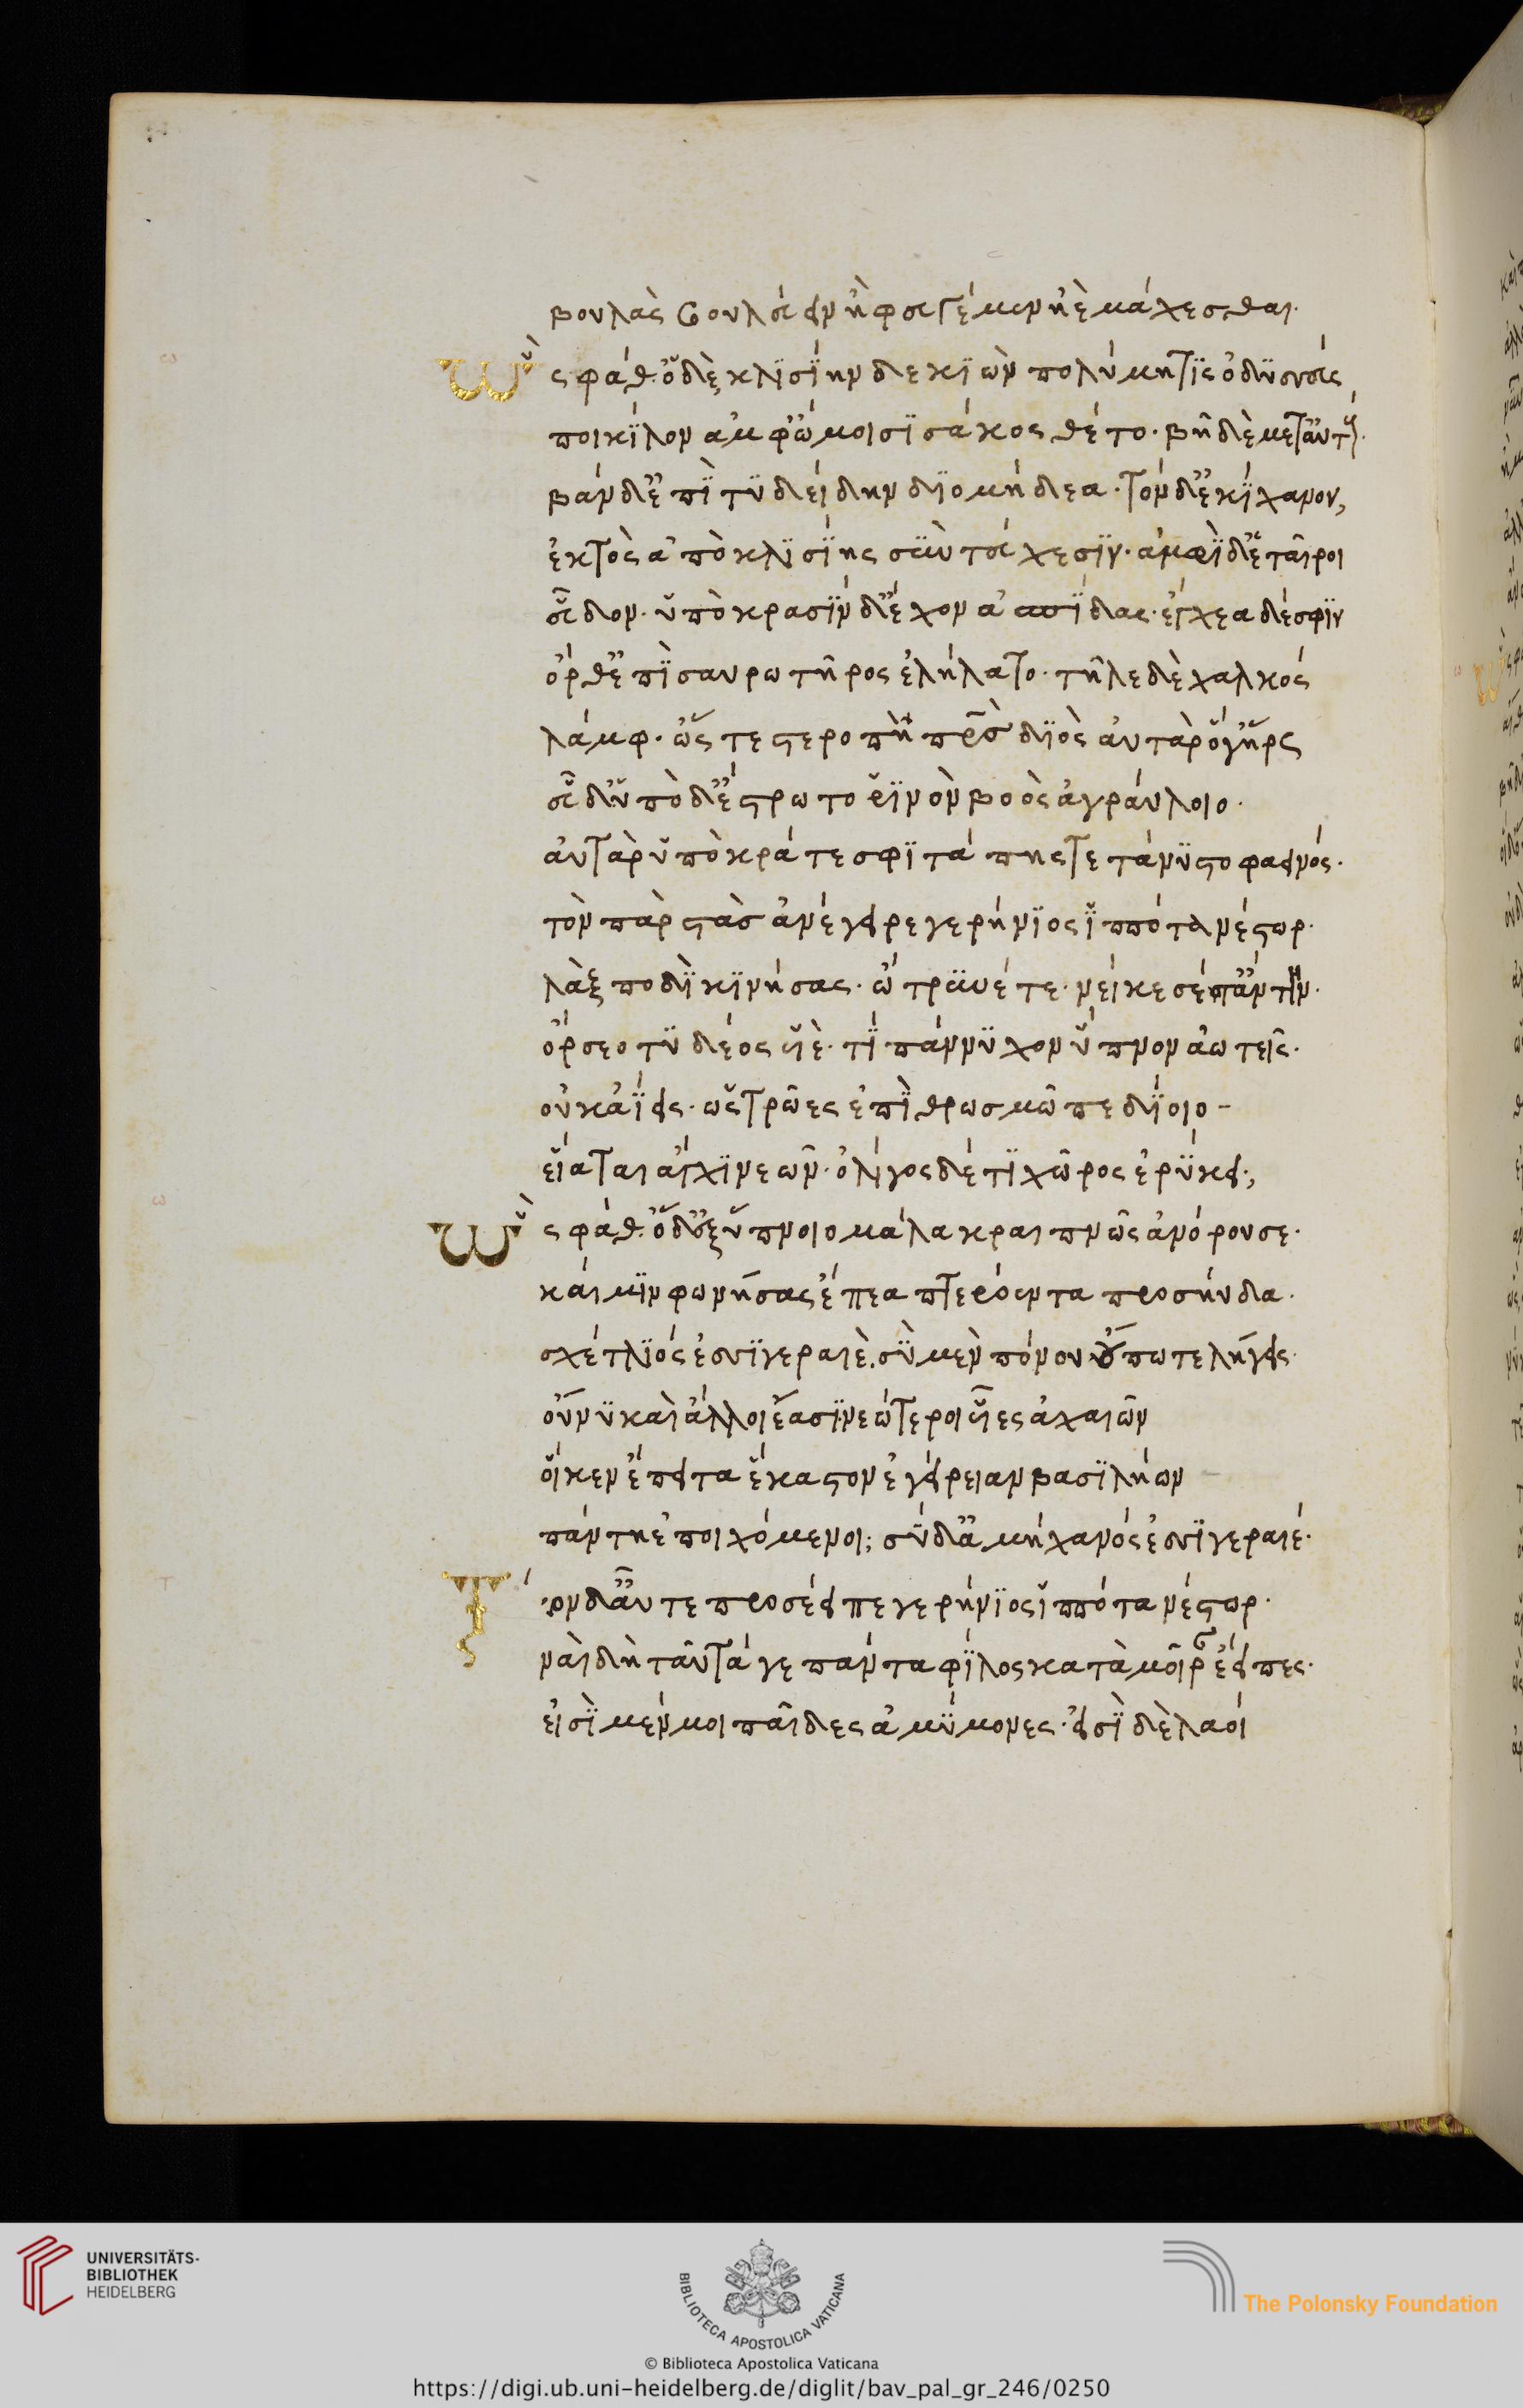 βουλὰς βουλεύειν ἢ φευγέμεν ἠὲ μάχεσθαι·
Ὣς φάθ· ὁ δὲ κλϊσΐην δε κϊὼν πολύμητϊς ὀδϋσσεύς
ποικΐλον ἀμφ' ὤμοισϊ σάκος θέτο· βῆ δὲ μετ' αὐτούς·
βὰν δ' ἐπῒ τϋδείδην δϊομήδεα· τὸν δ' ἐκΐχανον,
ἐκτὸς ἀπὸ κλϊσΐης σὺν τεύχεσϊν· ἀμφῒ δ' ἑταῖροι
εὗδον· ὑπὸ κρασῒν δ' ἔχον ἀσπΐδας· ἔγχεα δέ σφϊν
ὄρθ' ἐπῒ σαυρωτῆρος ἐλήλατο· τῆλε δὲ χαλκός
λάμφ· ὥς τε στεροπὴ πρσ̀ δϊὸς αὐτὰρ ὅγ' ἥρως
εὗδ' ὑπὸ δ' ἔστρωτο ῥϊνὸν βοὸς ἀγραύλοιο·
αὐτὰρ ὑπὸ κράτεσφϊ τάπης τετάνϋστο φαεινός·
τὸν παρστὰς ἀνέγειρε γερήνϊος ἱππότα νέστωρ·
λὰξ ποδῒ κϊνήσας· ὤτρϋνέ τε· νείκεσέ τ' ἄντην·
ὄρσεο τϋδέος υἱὲ· τΐ πάννϋχον ὕπνον ἀωτεῖς·
οὐκ ἀΐεις· ὡς τρῶες ἐπῒ θρωσμῶ πεδΐοιο -
εἵαται ἄγχϊ νεῶν· ὀλΐγος δέ τϊ χῶρος ἐρΰκει;
Ὣς φάθ· ὁ δ' ἐξ ὕπνοιο μάλα κραιπνῶς ἀνόρουσε·
καί μϊν φωνήσας ἔπεα πτερόεντα προσηύδα·
σχέτλϊός ἐσσϊ γεραιὲ. σῢ μὲν πόνου οὔποτε λήγεις·
οὔ νϋ καὶ ἄλλοι ἔασϊ νεώτεροι υἷες ἀχαιῶν
οἵ κεν ἔπειτα ἕκαστον ἐγείρειαν βασϊλήων
πάντη ἐποιχόμενοι; σῢ δ' ἀμήχανός ἐσσϊ γεραιέ·
Τὸν δ' αὖτε προσέειπε γερήνϊος ἱππότα νέστωρ·
ναὶ δὴ ταῦτά γε πάντα φΐλος κατὰ μοῖρ' ἔειπες·
εἰσῒ μέν μοι παῖδες ἀμΰμονες· εἰσῒ δὲ λαοί
UNIVERSITÄTS-
BIBLIOTHEK
HEIDELBERG
BIBLIOTECA APOSTOLICA VATICANA
The Polonsky Foundation
© Biblioteca Apostolica Vaticana
https://digi.ub.uni-heidelberg.de/diglit/bav_pal_gr_246/0250